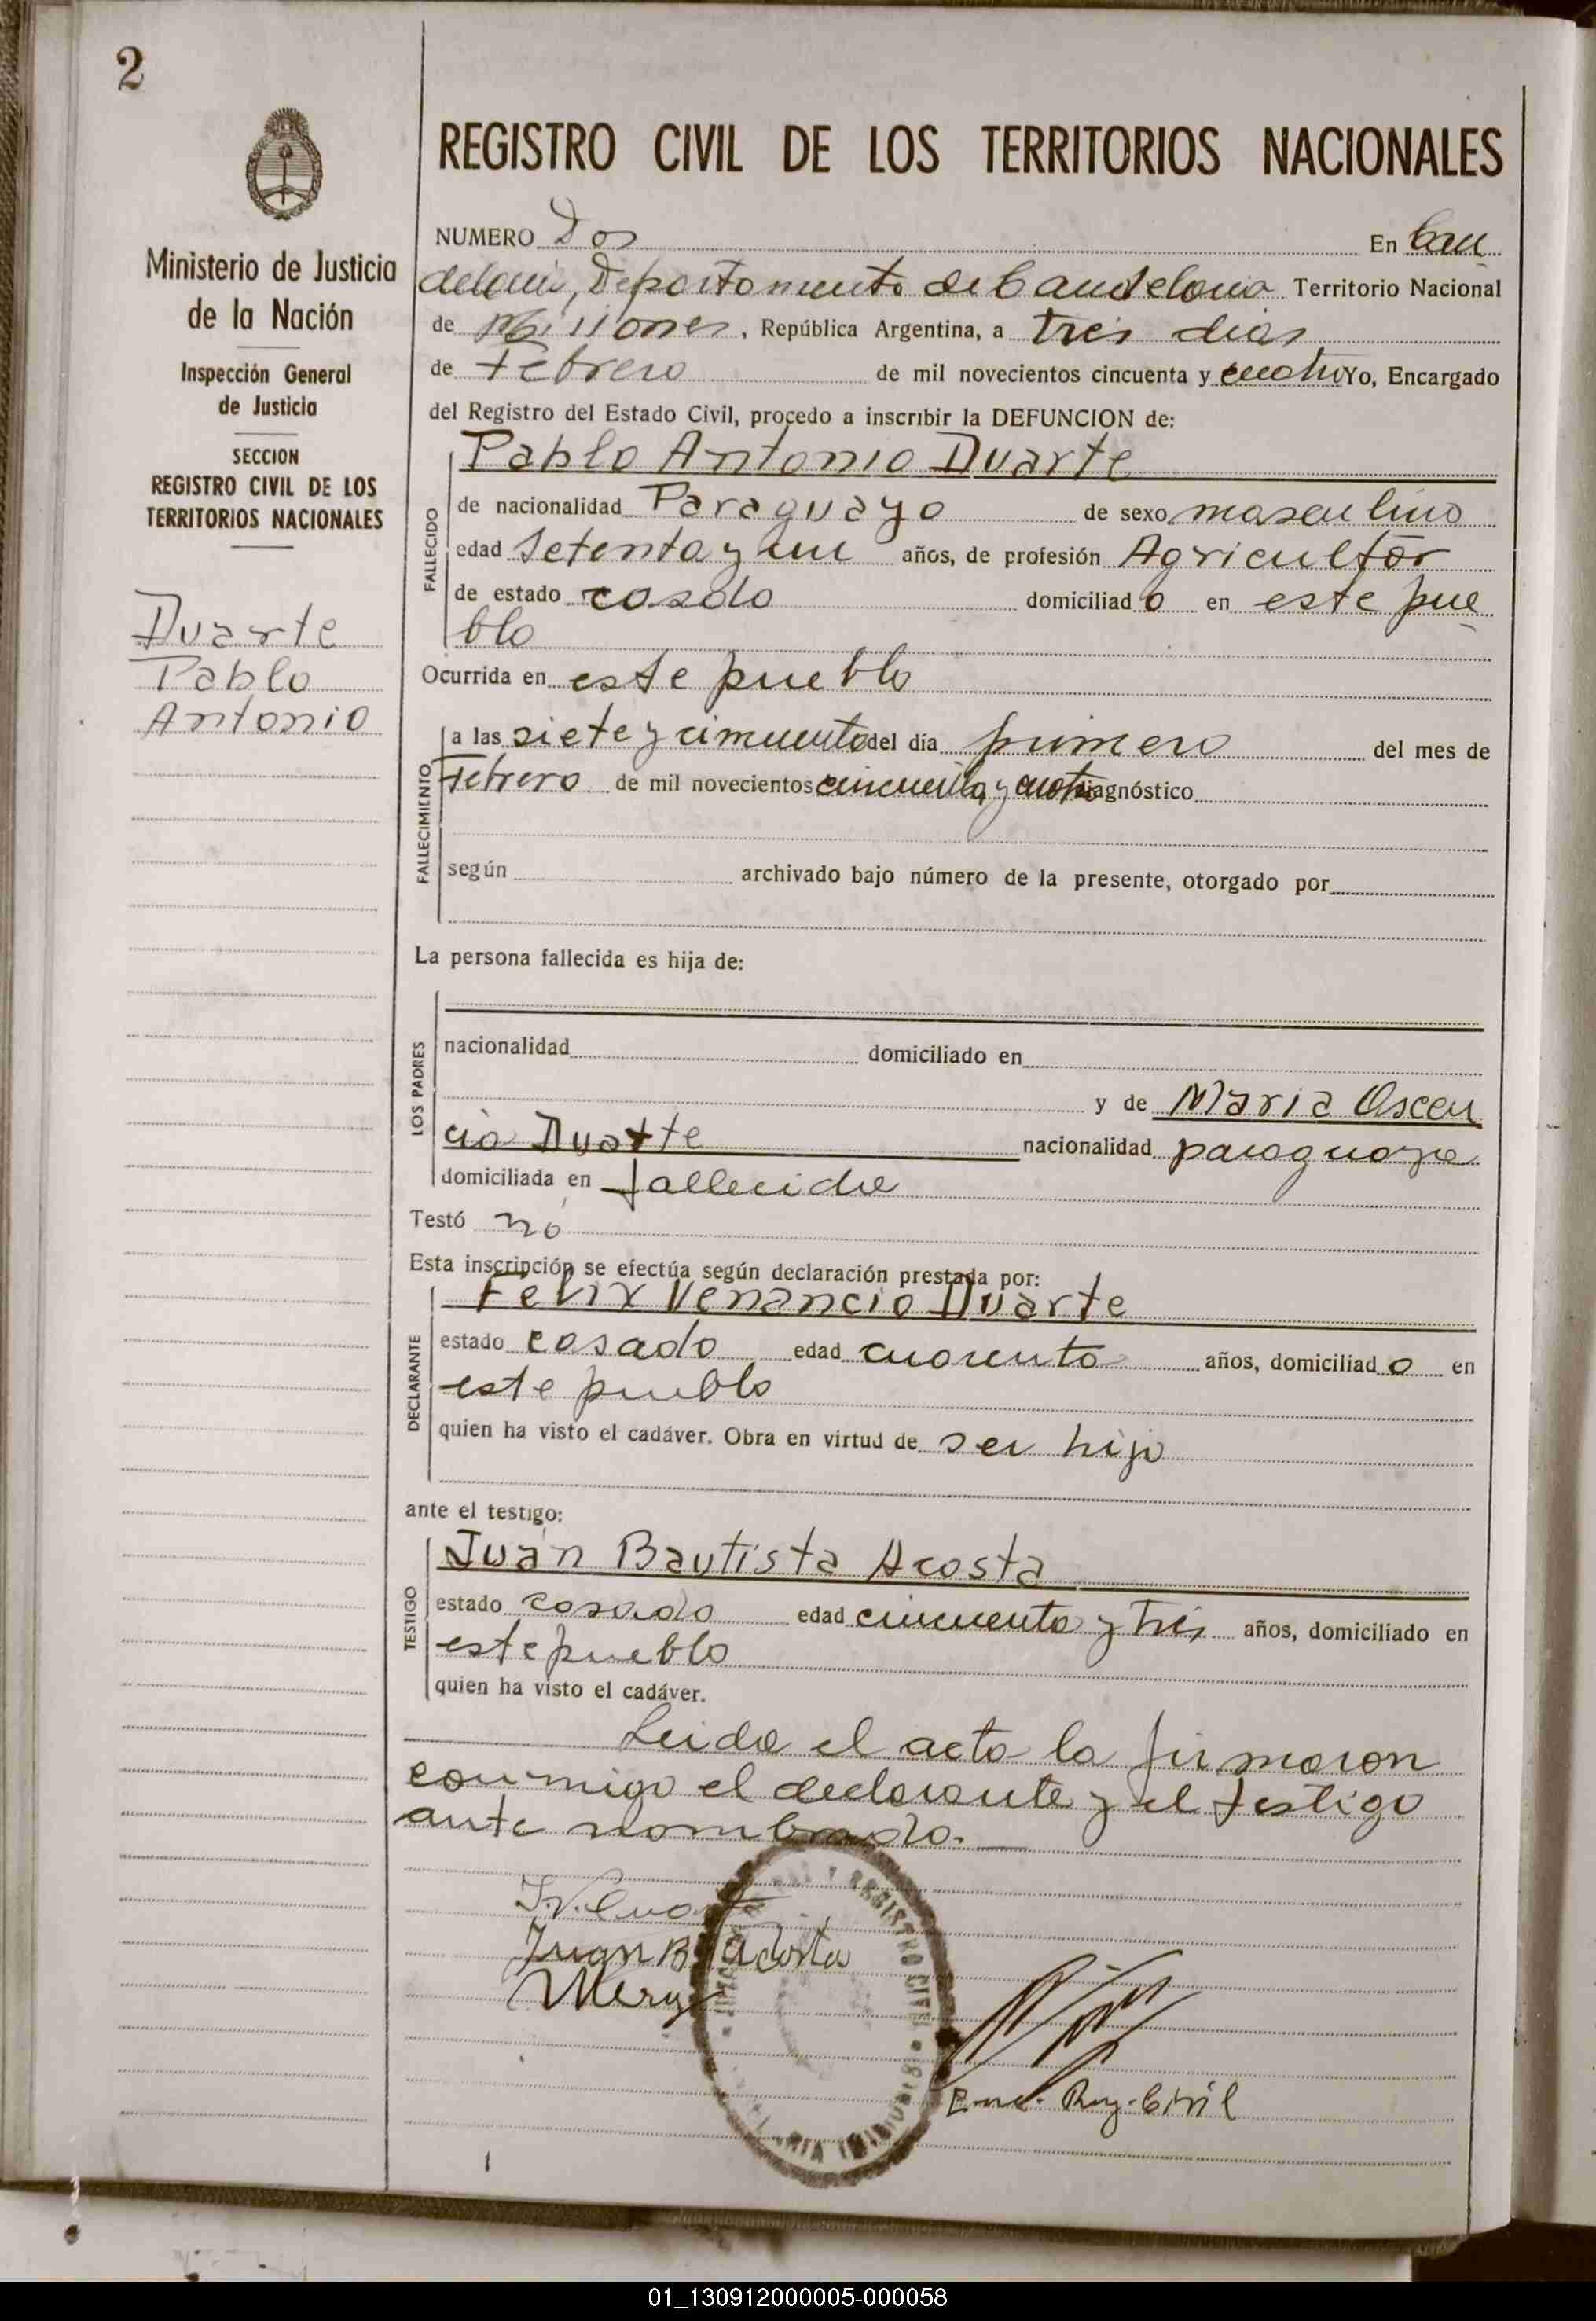 2
REGISTRO CIVIL DE LOS TERRITORIOS NACIONALES
Ministerio de Justicia
de la Nación
Inspección General
de Justicia
SECCION
REGISTRO CIVIL DE LOS
TERRITORIOS NACIONALES
Duarte
Pablo
Antonio
NUMERO Dos En Can
delaria, Departamento de Candelaria Territorio Nacional
de Misiones, República Argentina, a tres dias
de Febrero de mil novecientos cincuenta y cuatro Yo, Encargado
del Registro del Estado Civil, procedo a inscribir la DEFUNCION de:
Pablo Antonio Duarte
FALLECIDO
de nacionalidad Paraguayo de sexo masculino
edad Setenta y un años, de profesión Agricultor
de estado casado domiciliado en este pue
blo
Ocurrida en este pueblo
FALLECIMIENTO
a las siete y cincuenta del día primero del mes de
Febrero de mil novecientos cincuenta y cuatro diagnóstico
según archivado bajo número de la presente, otorgado por
La persona fallecida es hija de:
LOS PADRES
nacionalidad domiciliado en
y de Maria Ascen
cia Duarte nacionalidad paraguaya
domiciliada en fallecida
Testó no
Esta inscripción se efectúa según declaración prestada por:
Felix Venancio Duarte
DECLARANTE
estado casado edad cuarenta años, domiciliado en
este pueblo
quien ha visto el cadáver. Obra en virtud de ser hijo
ante el testigo:
Juan Bautista Acosta
TESTIGO
estado casado edad cincuenta y tres años, domiciliado en
este pueblo
quien ha visto el cadáver.
Leida el acta la firmaron
conmigo el declarante y el testigo
ante nombrado.
Juan Bta Acosta
REGISTRO CIVIL
Enc. Reg. Civil
01_130912000005-000058